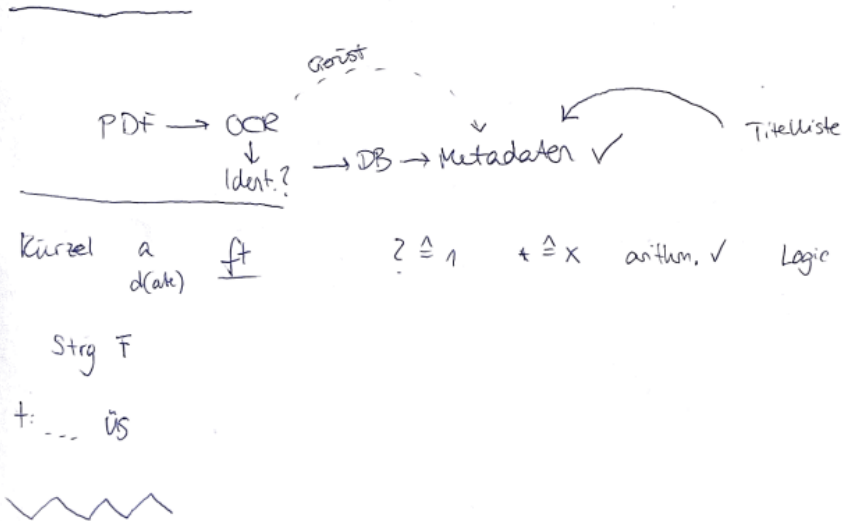 PDF → OCR
↓
Ident.? → DB → Metadaten ✓
Titelliste
Kürzel a ft ? ≙ 1 * ≙ x arithm. ✓ Logic
d(ate)
Strg F
t: ... üs